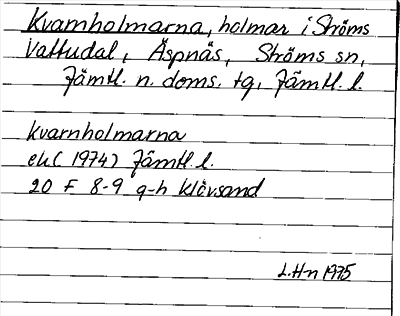 Kvarnholmarna, holmar i Ströms
Vattudal, Äspnäs, Ströms sn,
Jämtl. n. doms. tg, Jämtl. l.
Kvarnholmarna
ek (1974) Jämtl. l.
20 F 8-9 g-h Klövsand
L.H-n 1975